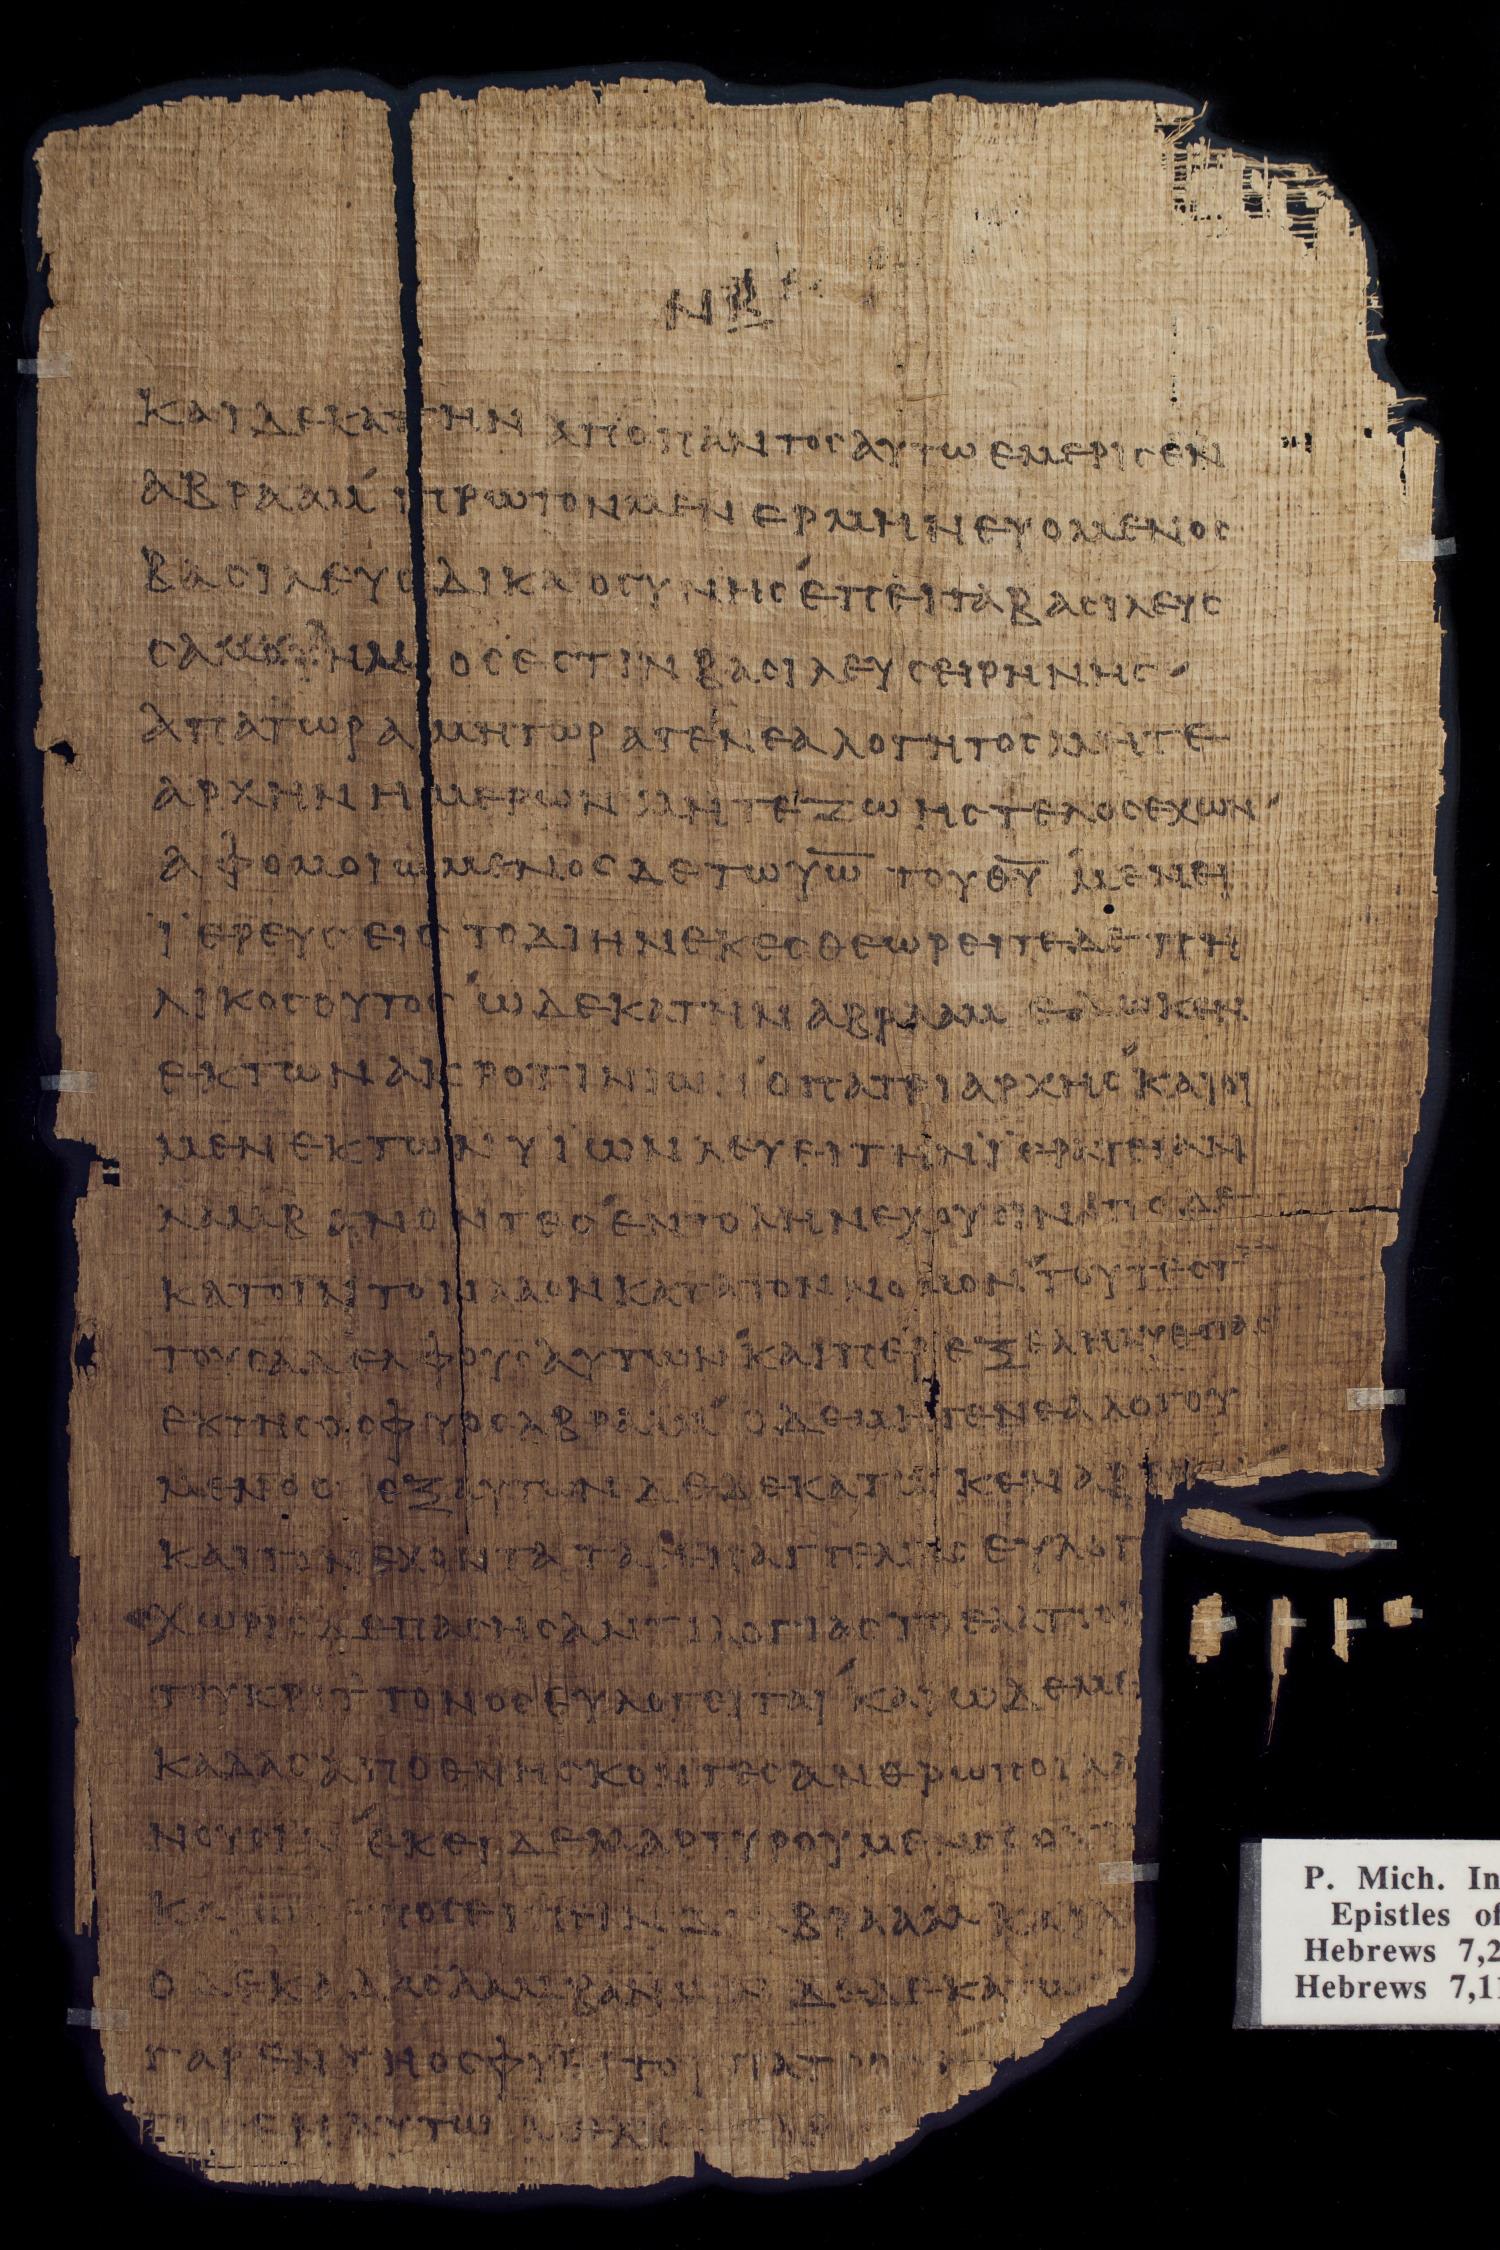 ΝΒ
ΚΑΙ ΔΕΚΑΤΗΝ ΑΠΟ ΠΑΝΤΟΣ ΑΥΤΩ ΕΜΕΡΙΣΕΝ
ΑΒΡΑΑΜ ΠΡΩΤΟΝ ΜΕΝ ΕΡΜΗΝΕΥΟΜΕΝΟΣ
ΒΑΣΙΛΕΥΣ ΔΙΚΑΙΟΣΥΝΗΣ ΕΠΕΙΤΑ ΒΑΣΙΛΕΥΣ
ΟΣ ΕΣΤΙΝ ΒΑΣΙΛΕΥΣ ΕΙΡΗΝΗΣ
ΑΠΑΤΩΡ ΑΜΗΤΩΡ ΑΓΕΝΕΑΛΟΓΗΤΟΣ ΜΗΤΕ
ΑΡΧΗΝ ΗΜΕΡΩΝ ΜΗΤΕ ΖΩΗΣ ΤΕΛΟΣ ΕΧΩΝ
ΑΦΟΜΟΙΩΜΕΝΟΣ ΔΕ ΤΩ Υ̅Ω̅ ΤΟΥ Θ̅Υ̅ ΜΕΝΕΙ
ΪΕΡΕΥΣ ΕΙΣ ΤΟ ΔΙΗΝΕΚΕΣ ΘΕΩΡΕΙΤΕ ΔΕ ΠΗ
ΛΙΚΟΣ ΟΥΤΟΣ Ω ΔΕΚΑΤΗΝ ΑΒΡΑΑΜ ΕΔΩΚΕΝ
ΕΚ ΤΩΝ Ο ΠΑΤΡΙΑΡΧΗΣ ΚΑΙ ΟΙ
ΜΕΝ ΕΚ ΤΩΝ ΥΙΩΝ ΛΕΥΕΙ ΤΗΝ ΪΕΡΑΤΕΙΑΝ
ΛΑΜΒΑΝΟΝΤΕΣ ΕΝΤΟΛΗΝ ΕΧΟΥΣΙΝ ΑΠΟΔΕ
ΚΑΤΟΙΝ ΤΟΝ ΛΑΟΝ ΚΑΤΑ ΤΟΝ ΝΟΜΟΝ ΤΟΥΤΕΣΤ
ΤΟΥΣ ΑΔΕΛΦΟΥΣ ΑΥΤΩΝ ΚΑΙΠΕΡ ΕΞΕΛΗΛΥΘΟΤΑΣ
ΕΚ ΤΗΣ ΟΣΦΥΟΣ ΑΒΡΑΑΜ Ο ΔΕ ΜΗ ΓΕΝΕΑΛΟΓΟΥ
ΜΕΝΟΣ ΕΞ ΑΥΤΩΝ ΔΕΔΕΚΑΤΩΚΕΝ
ΚΑΙ ΤΟΝ ΕΧΟΝΤΑ ΤΑΣ ΕΥΛΟΓ
ΧΩΡΙΣ ΔΕ ΠΑΣΗΣ ΑΝΤΙΛΟΓΙΑΣ ΤΟ ΕΛΑΤΤΟΝ
ΤΟΥ ΚΡΙΤΤΟΝΟΣ ΕΥΛΟΓΕΙΤΑΙ ΚΑΙ ΩΔΕ ΜΕ
ΚΑΔΑΣ ΑΠΟΘΝΗΣΚΟΝΤΕΣ ΑΝΘΡΩΠΟΙ ΛΑ
ΕΚΕΙ ΔΕ ΜΑΡΤΥΡΟΥΜΕΝΟΣ
ΕΙΠΕΙΝ ΔΙ ΑΒΡΑΑΜ ΚΑΙ Λ
Ο ΔΕΚΑΔΑΣ ΛΑΜΒΑΝΩΝ ΔΕΔΕΚΑΤΩ
ΓΑΡ ΕΝ ΤΗ ΟΣΦΥΕΙ ΤΟΥ ΠΑΤ
ΑΥΤΩ
P. Mich. In
Epistles of
Hebrews 7,2
Hebrews 7,11